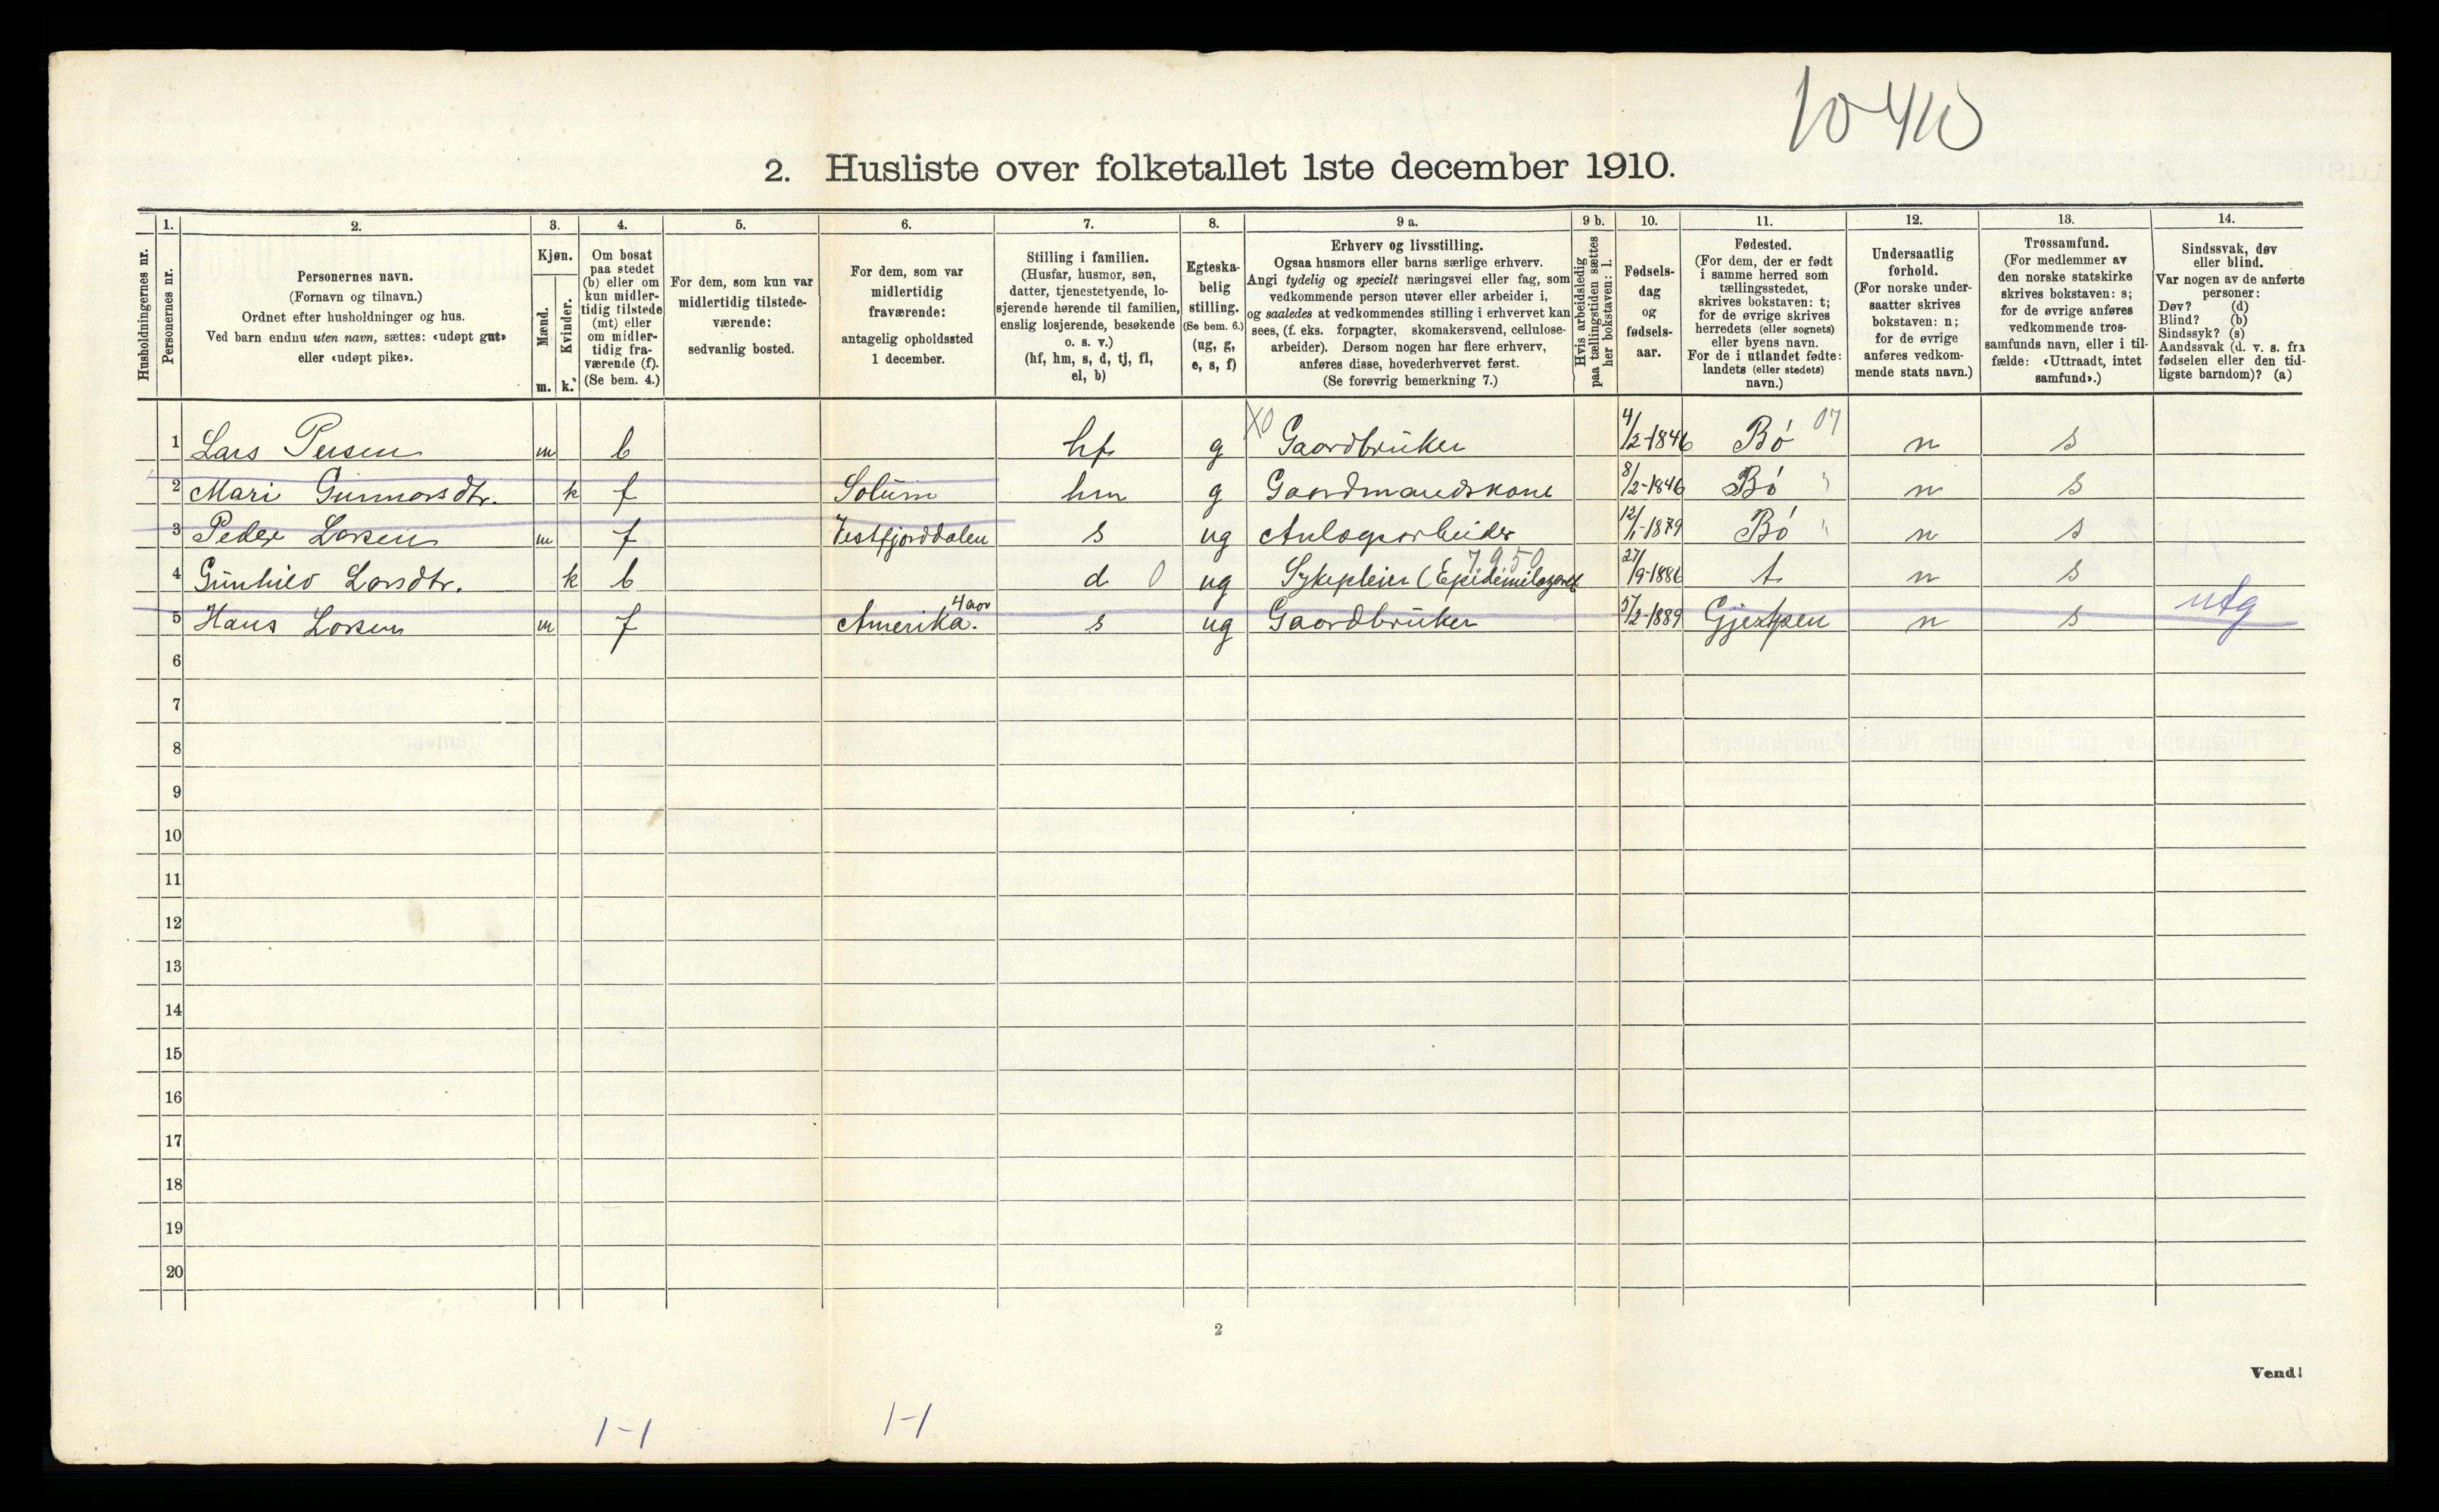 10410
2. Husliste over folketallet 1ste december 1910.
Husholdningernes nr.
1. Personernes nr.
2. Personernes navn. (Fornavn og tilnavn.) Ordnet efter husholdninger og hus. Ved barn endnu uten navn, sættes: «udøpt gut» eller «udøpt pike».
3. Kjøn. Mænd. m. Kvinder. k.
4. Om bosat paa stedet (b) eller om kun midlertidig tilstede (mt) eller om midlertidig fraværende (f). (Se bem. 4.)
5. For dem, som kun var midlertidig tilstedeværende: sedvanlig bosted.
6. For dem, som var midlertidig fraværende: antagelig opholdssted 1 december.
7. Stilling i familien. (Husfar, husmor, søn, datter, tjenestetyende, losjerende hørende til familien, enslig losjerende, besøkende o. s. v.) (hf, hm, s, d, tj, fl, el, b)
8. Egteskabelig stilling. (Se bem. 6.) (ug, g, e, s, f)
9 a. Erhverv og livsstilling. Ogsaa husmors eller barns særlige erhverv. Angi tydelig og specielt næringsvei eller fag, som vedkommende person utøver eller arbeider i, og saaledes at vedkommendes stilling i erhvervet kan sees, (f. eks. forpagter, skomakersvend, cellulosearbeider). Dersom nogen har flere erhverv, anføres disse, hovederhvervet først. (Se forøvrig bemerkning 7.)
9 b. Hvis arbeidsledig paa tællingstiden sættes her bokstaven: l.
10. Fødselsdag og fødselsaar.
11. Fødested. (For dem, der er født i samme herred som tællingsstedet, skrives bokstaven: t; for de øvrige skrives herredets (eller sognets) eller byens navn. For de i utlandet fødte: landets (eller stedets) navn.)
12. Undersaatlig forhold. (For norske undersaatter skrives bokstaven: n; for de øvrige anføres vedkommende stats navn.)
13. Trossamfund. (For medlemmer av den norske statskirke skrives bokstaven: s; for de øvrige anføres vedkommende trossamfunds navn, eller i tilfælde: «Uttraadt, intet samfund».)
14. Sindssvak, døv eller blind. Var nogen av de anførte personer: Døv? (d) Blind? (b) Sindssyk? (s) Aandssvak (d. v. s. fra fødselen eller den tidligste barndom)? (a)
1 Lars Persen m b hf g X0 Gaardbruker 4/2-1846 Bø 07 n s
2 Mari Gunnarsdtr. k f Solum hm g Gaardmandskone 8/2-1846 Bø " n s
3 Peder Larsen m f Vestfjorddalen s ug Anlægsarbeider 12/1-1879 Bø " n s
4 Gunhild Larsdtr. k b d 0 ug Sykepleier (Epidemilazaret 7.9.50 27/9-1886 t n s
5 Hans Larsen m f Amerika. 4 aar s ug Gaardbruker 5/2-1889 Gjerpen n s utg
6
7
8
9
10
11
12
13
14
15
16
17
18
19
20
2
Vend!
1-1
1-1